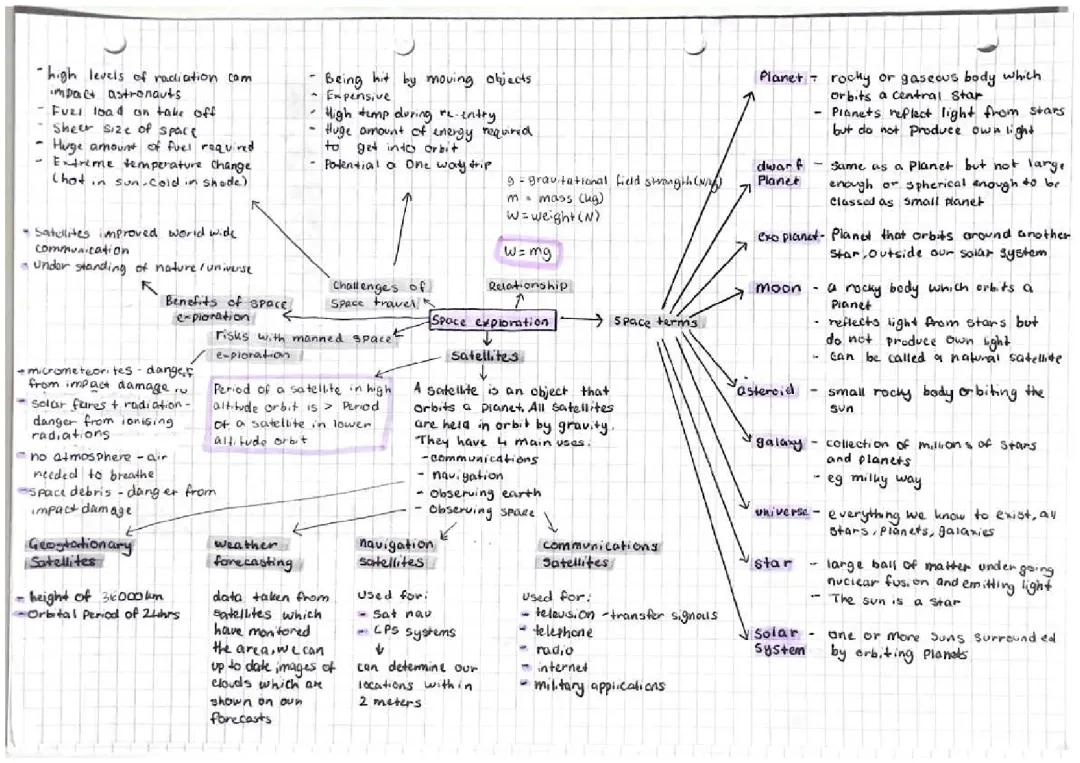 - high levels of radiation can
impact astronauts
- Fuel load on take off
- Sheer size of space
- Huge amount of fuel required
- Extreme temperature change
(hot in sun, cold in shade)
- Being hit by moving objects
- Expensive
- High temp during re-entry
- Huge amount of energy required
to get into orbit
- Potential a One way trip
g = gravitational field strength (N/kg)
m = mass (kg)
W = weight (N)
W = mg
Relationship
Challenges of
Space travel
- Satellites improved world wide
communication
- Understanding of nature/universe
Benefits of space
exploration
Space exploration
risks with manned space
exploration
- micrometeorites - danger
from impact damage
- solar flares + radiation -
danger from ionising
radiations
- no atmosphere - air
needed to breathe
- space debris - danger from
impact damage
Satellites
Period of a satellite in high
altitude orbit is > Period
of a satellite in lower
altitude orbit
A satellite is an object that
orbits a planet. All satellites
are held in orbit by gravity.
They have 4 main uses:
- communications
- navigation
- observing earth
- observing space
Geostationary
Satellites
- height of 36000km
- Orbital Period of 24hrs
weather
forecasting
data taken from
satellites which
have monitored
the area, we can
up to date images of
clouds which are
shown on our
forecasts
navigation
satellites
used for:
- Sat nav
- GPS systems
can determine our
locations within
2 meters
communications
satellites
used for:
- television - transfer signals
- telephone
- radio
- internet
- military applications
Space terms
Planet - rocky or gaseous body which
orbits a central star
- Planets reflect light from stars
but do not produce own light
dwarf
Planet - Same as a planet but not large
enough or spherical enough to be
classed as small planet
exo planet - Planet that orbits around another
star, outside our solar system
moon - a rocky body which orbits a
Planet
- reflects light from stars but
do not produce own light
- can be called a natural satellite
asteroid - small rocky body orbiting the
sun
galaxy - collection of millions of stars
and planets
- eg milky way
universe - everything we know to exist, all
stars, planets, galaxies
star - large ball of matter undergoing
nuclear fusion and emitting light
- The sun is a star
Solar
System - one or more suns surrounded
by orbiting planets